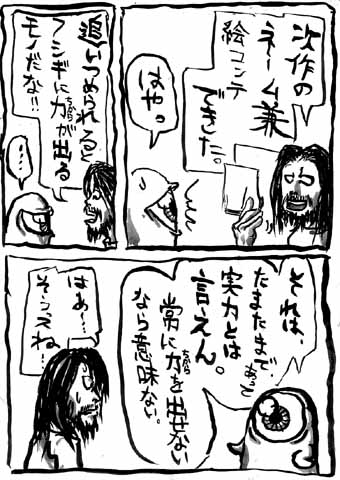 次作の
ネーム兼
絵コンテ
できた。
はや。
追いつめられると
フシギに力が出る
ちから
モノだな!!
…!
それは、
たまたまで、あって
実力とは
言えん。
常に力を出せない
ちから
なら意味ない。
はあ…
そうっスね…